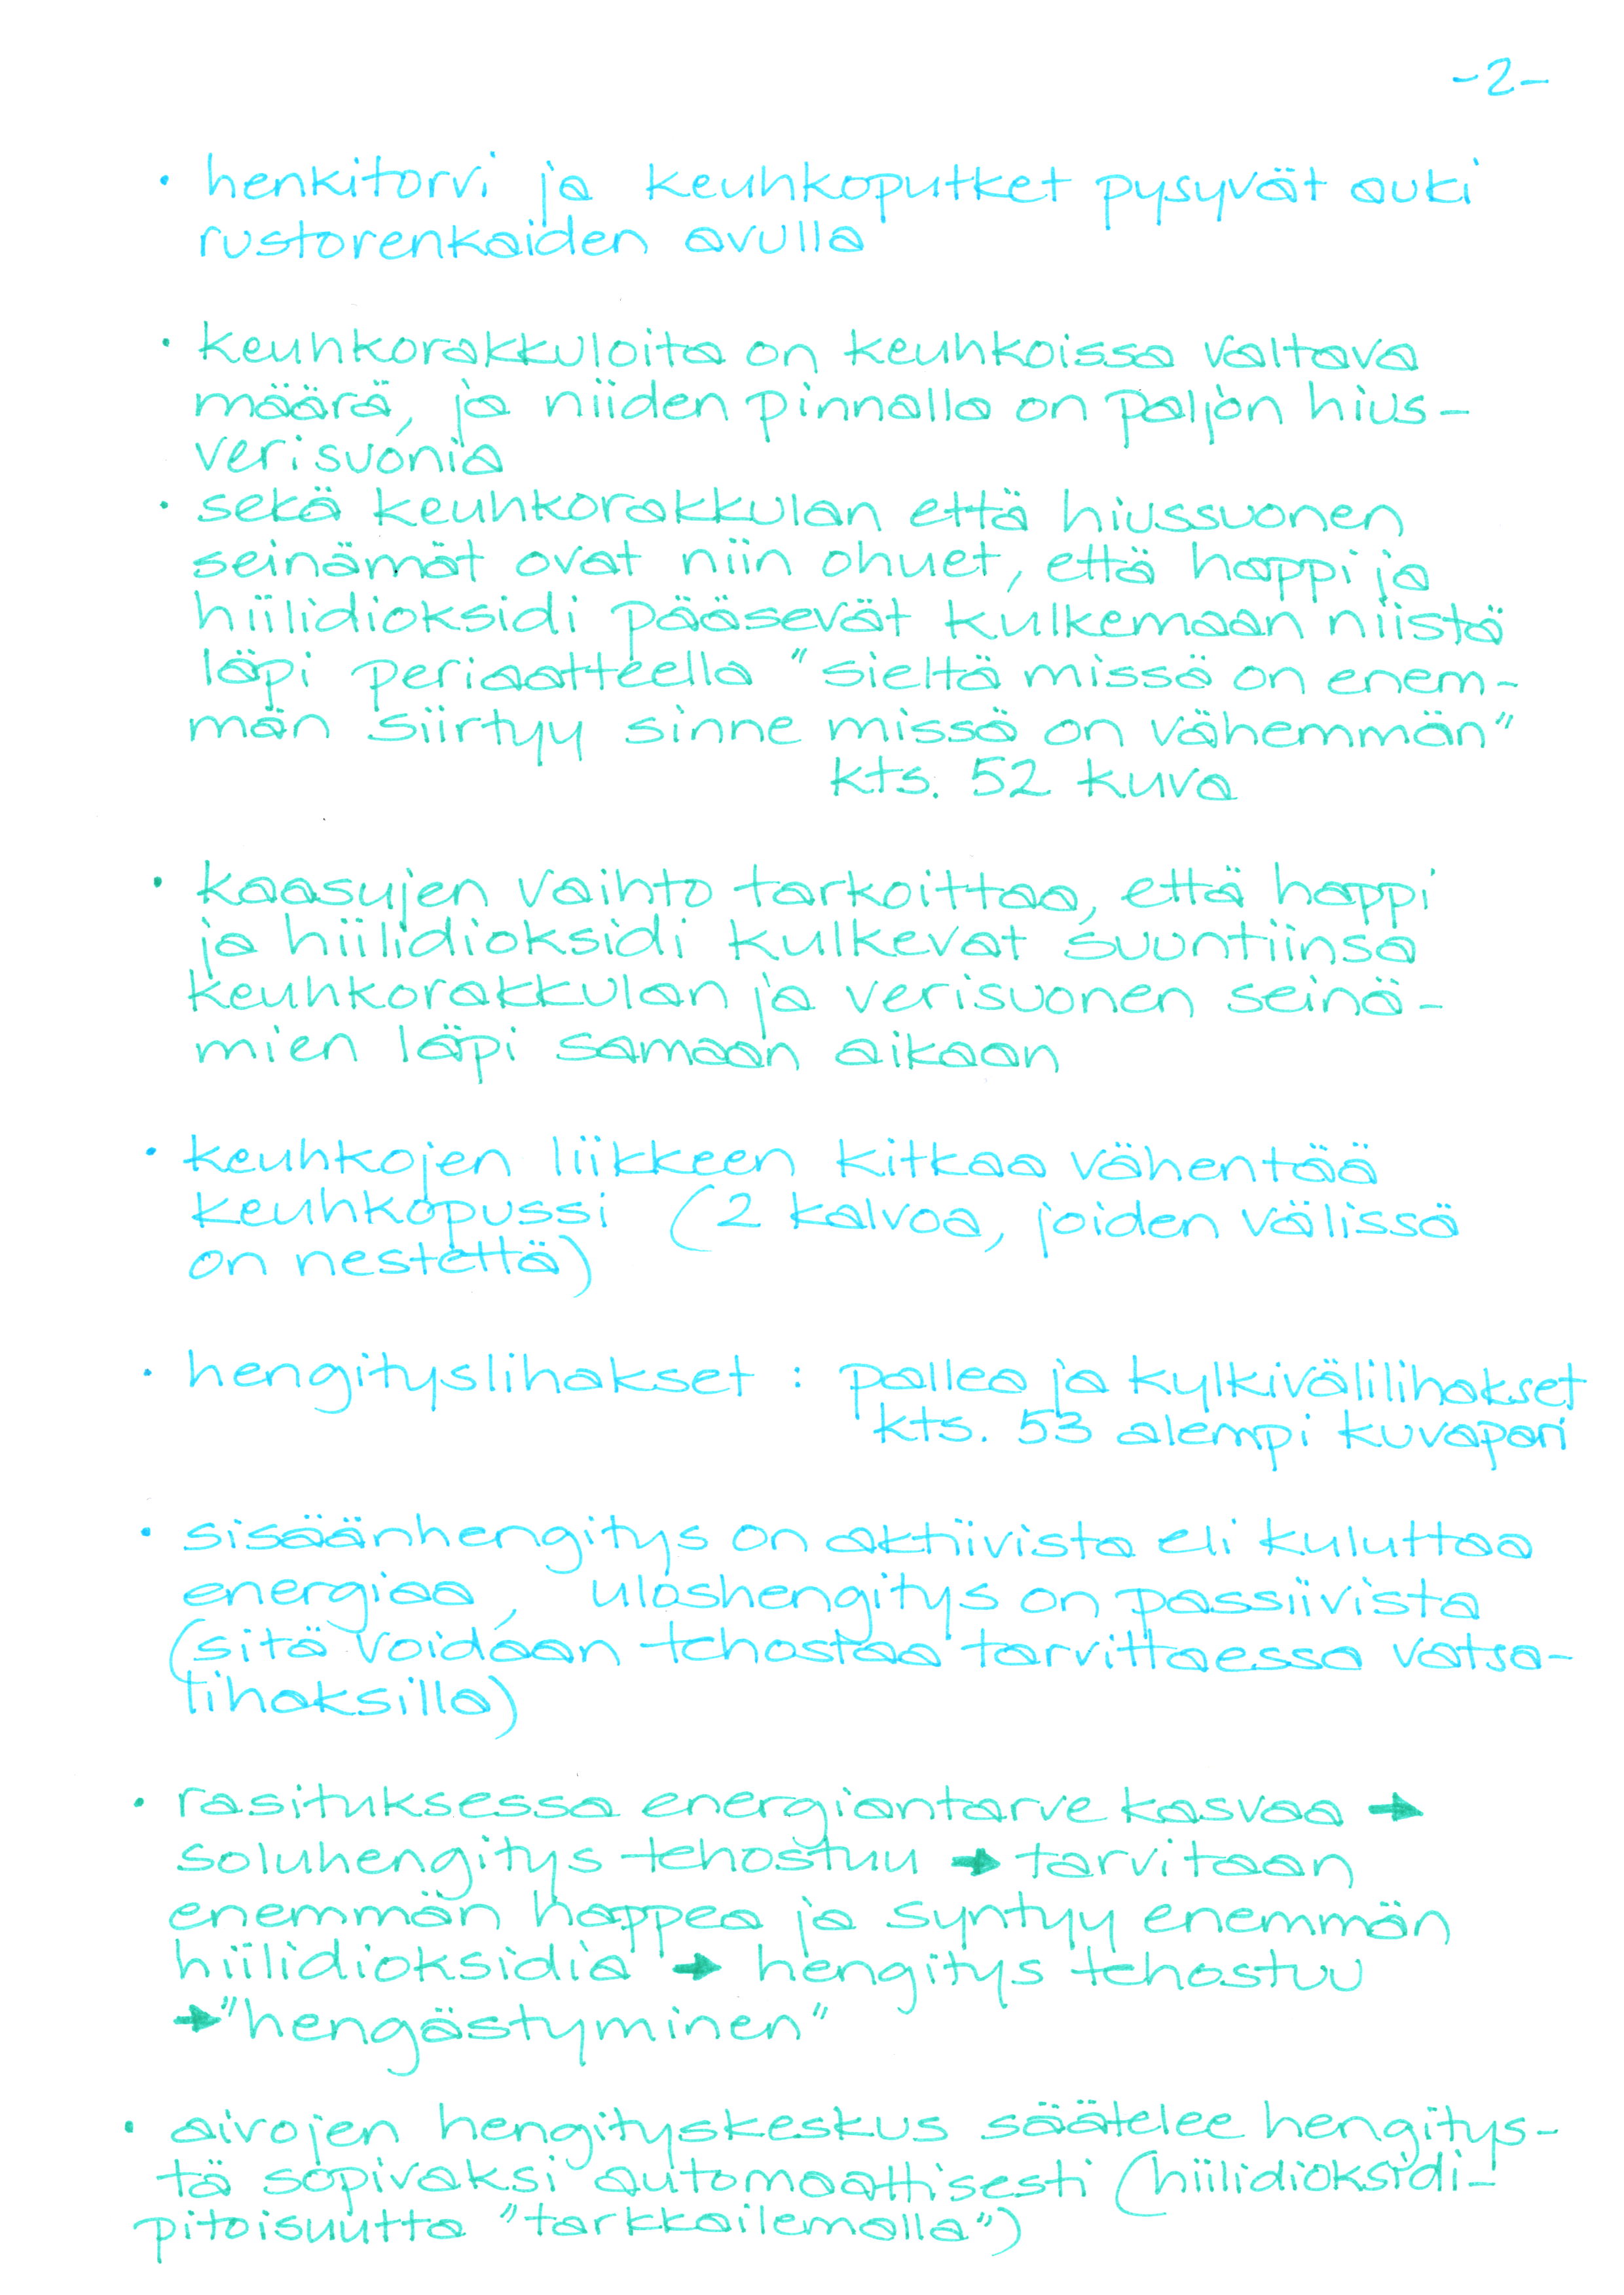 -2-
• henkitorvi ja keuhkoputket pysyvät auki
rustorenkaiden avulla
• keuhkorakkuloita on keuhkoissa valtava
määrä, ja niiden pinnalla on paljon hius-
verisuonia
• sekä keuhkorakkulan että hiussuonen
seinämät ovat niin ohuet, että happi ja
hiilidioksidi pääsevät kulkemaan niistä
läpi periaatteella "sieltä missä on enem-
män siirtyy sinne missä on vähemmän"
kts. 52 kuva
• kaasujen vaihto tarkoittaa, että happi
ja hiilidioksidi kulkevat suuntiinsa
keuhkorakkulan ja verisuonen seinä-
mien läpi samaan aikaan
• keuhkojen liikkeen kitkaa vähentää
keuhkopussi (2 kalvoa, joiden välissä
on nestettä)
• hengityslihakset : pallea ja kylkivälilihakset
kts. 53 alempi kuvapari
• sisäänhengitys on aktiivista eli kuluttaa
energiaa, uloshengitys on passiivista
(sitä voidaan tehostaa tarvittaessa vatsa-
lihaksilla)
• rasituksessa energiantarve kasvaa →
soluhengitys tehostuu → tarvitaan
enemmän happea ja syntyy enemmän
hiilidioksidia → hengitys tehostuu
→ "hengästyminen"
• aivojen hengityskeskus säätelee hengitys-
tä sopivaksi automaattisesti (hiilidioksidi-
pitoisuutta "tarkkailemalla")